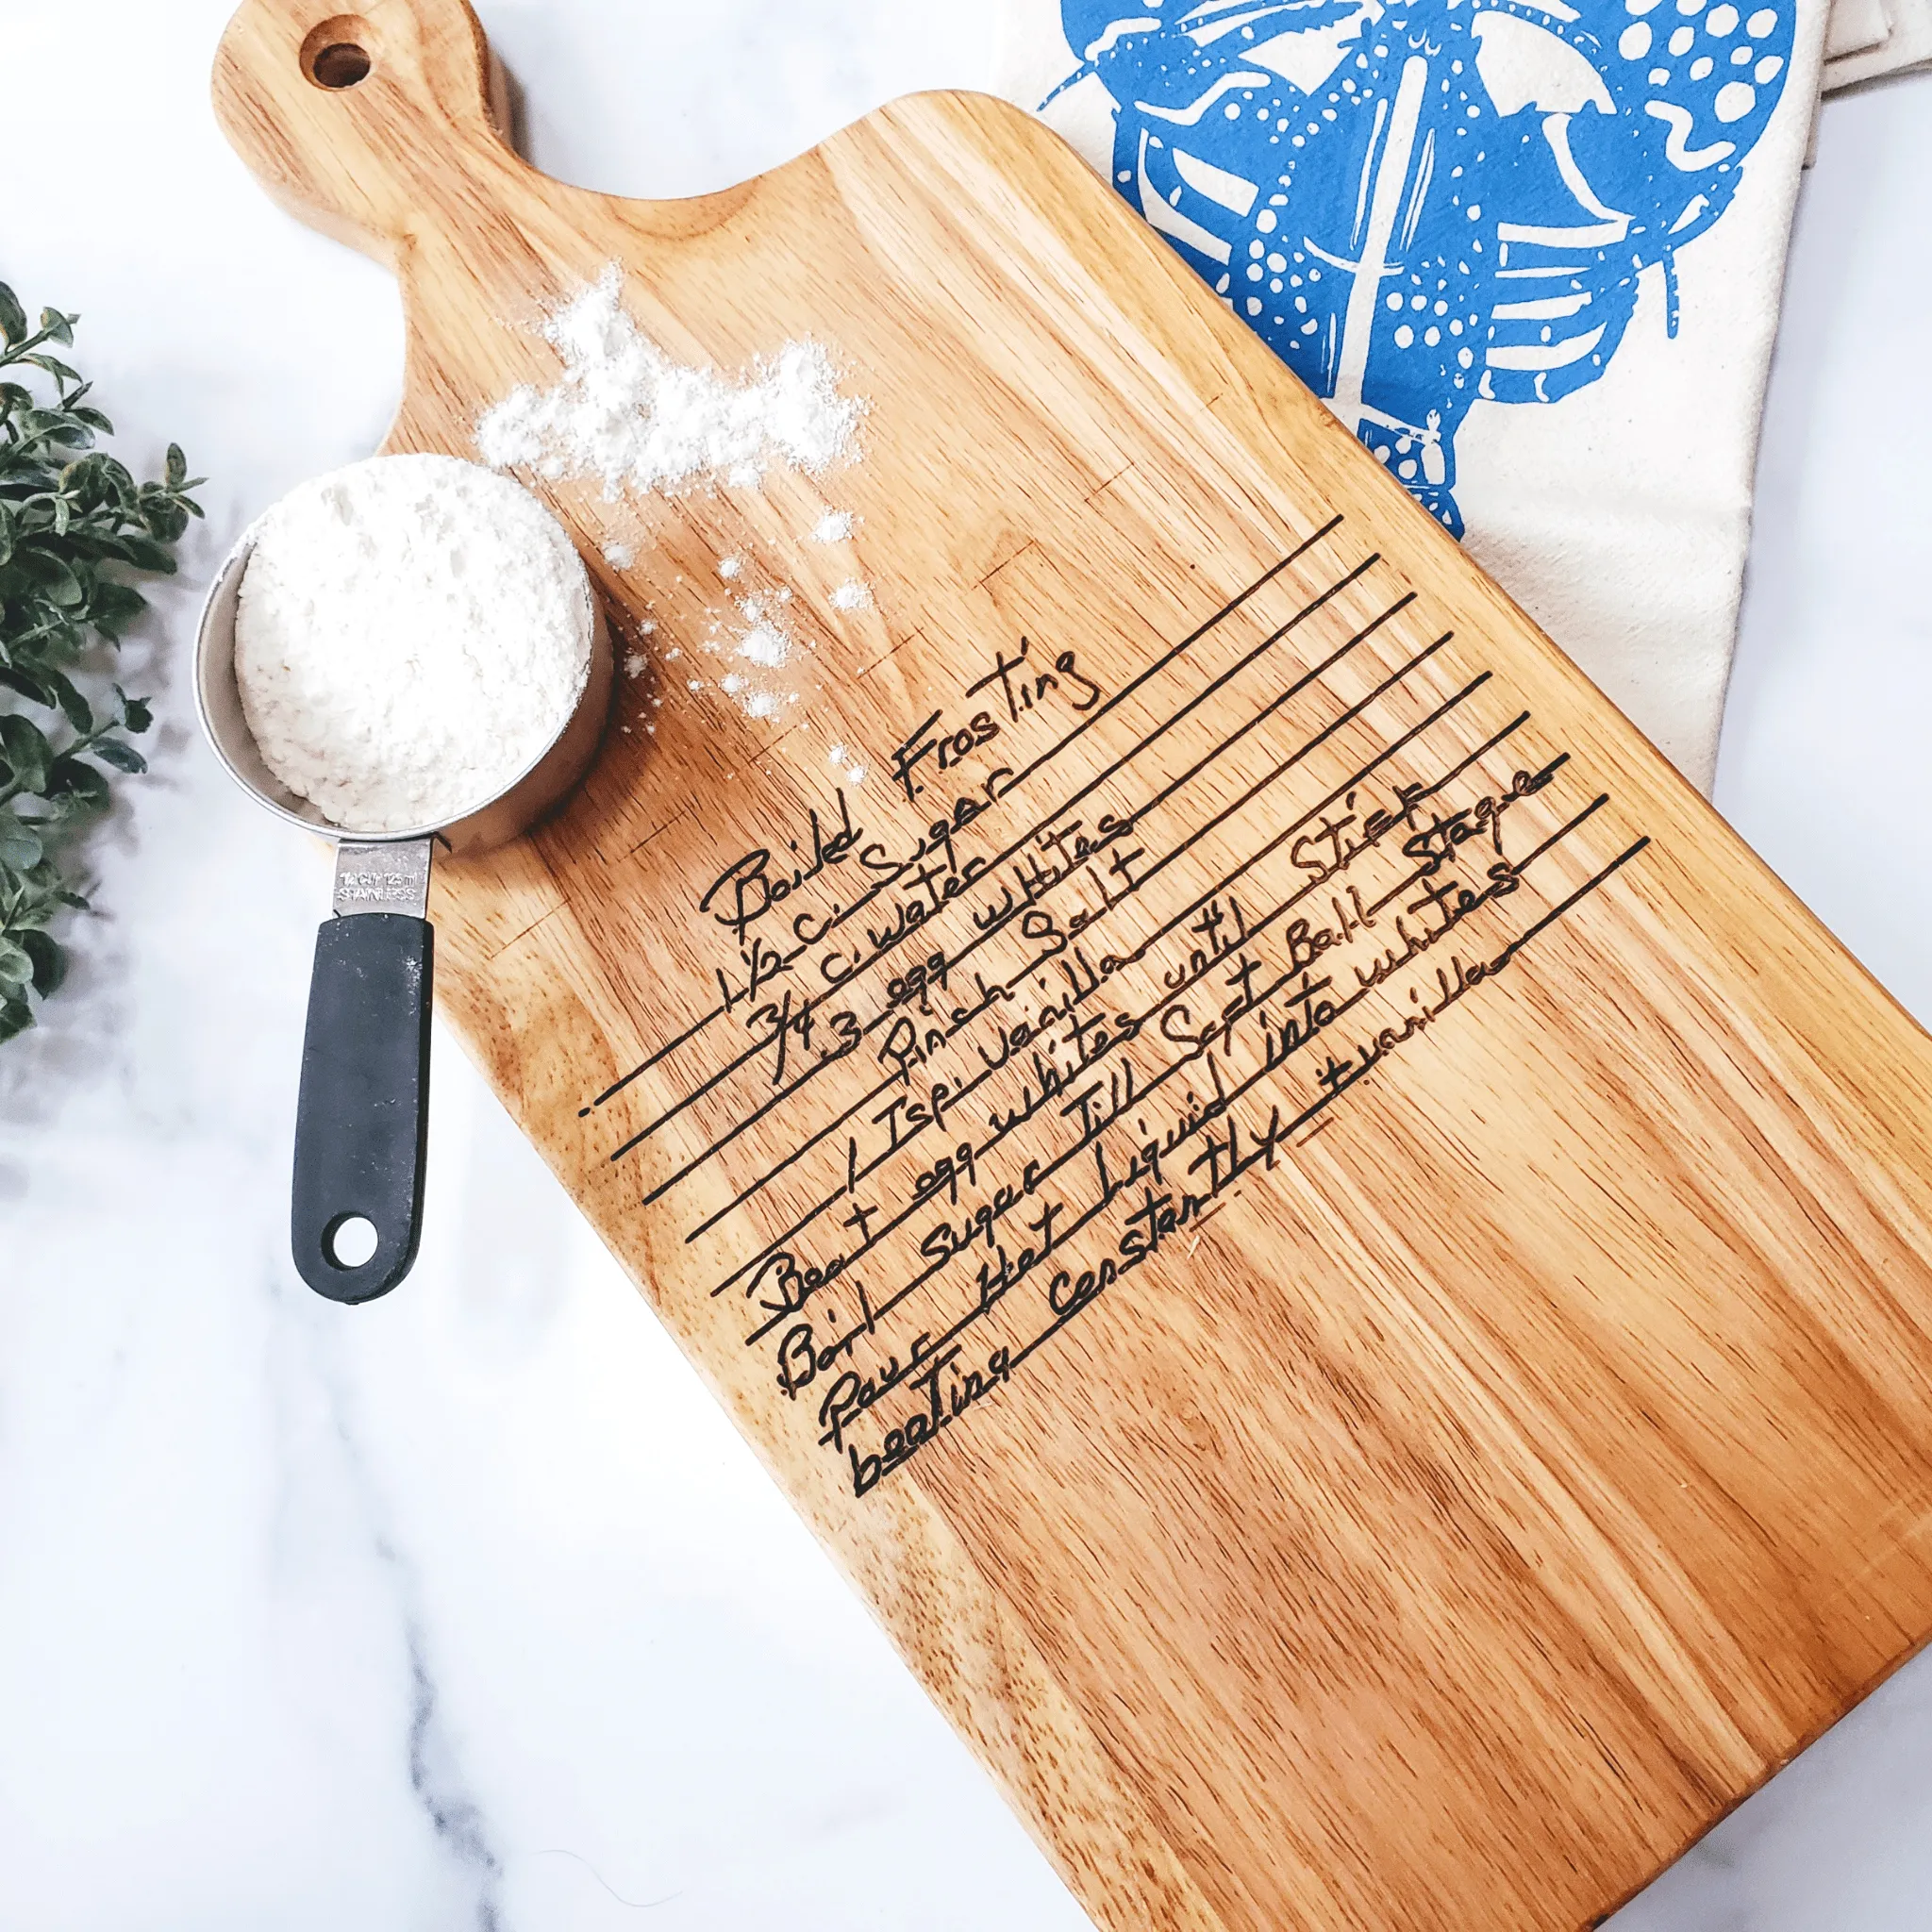 Boild Frosting
1 1/2 c. Sugar
3/4 c. water
3 egg whites
Pinch Salt
1 Tsp. Vanilla
Beat egg whites until Stiff
Boil Sugar Till Soft Ball Stage
Pour Hot Liquid into whites
beating Constantly + vanilla
STAINLESS